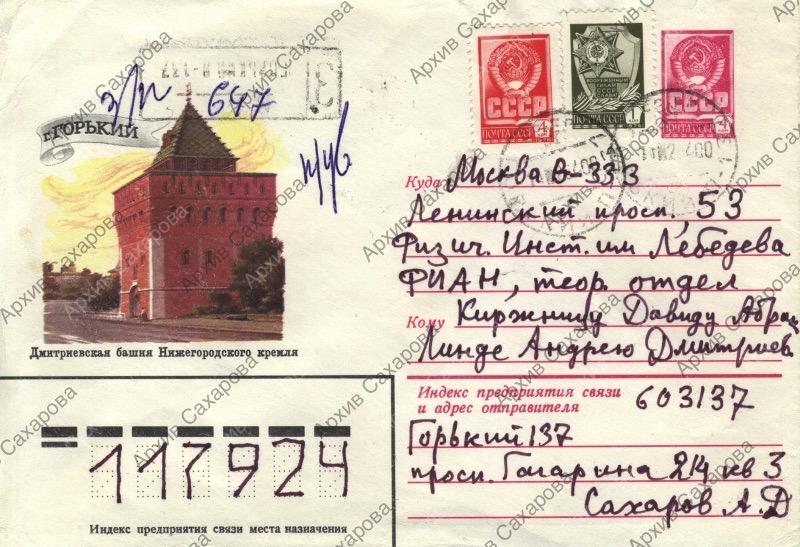 з/п 647
н/уб
г. ГОРЬКИЙ
Дмитриевская башня Нижегородского кремля
СССР
ПОЧТА СССР 4
ВООРУЖЕННЫМ СИЛАМ СССР СЛАВА
ПОЧТА СССР
СССР
ПОЧТА СССР 4
Куда Москва В-333
Ленинский просп. 53
Физич. Инст. им Лебедева
ФИАН, теор. отдел
Кому Киржницу Давиду Абрам
Линде Андрею Дмитриев.
Индекс предприятия связи
и адрес отправителя 603137
Горький 137
просп. Гагарина 214 кв 3
Сахаров А.Д
117924
Индекс предприятия связи места назначения
Архив Сахарова